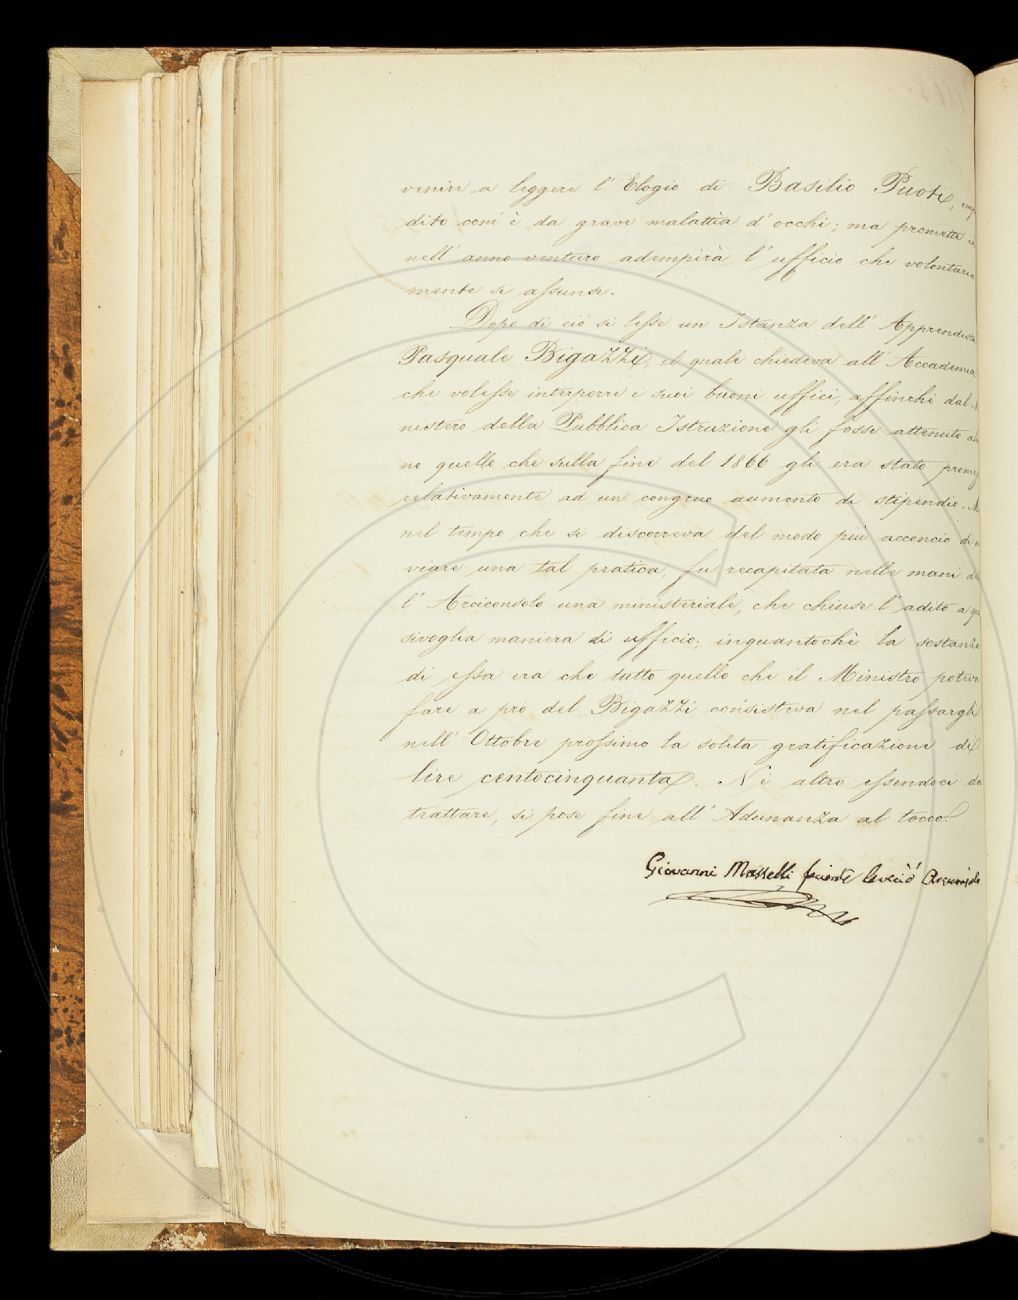 venire a leggere l'Elogio di Basilio Puoti, imp
dito com'è da grave malattia d'occhi; ma promette
nell'anno venturo adempirà l'ufficio che volontaria
mente si assunse.
Dopo di ciò si lesse un Istanza dell'Apprendista
Pasquale Bigazzi, il quale chiedeva all'Accademia,
che volesse interporre i suoi buoni uffici, affinchè dal
nistero della Pubblica Istruzione gli fosse attenuto
no quello che sulla fine del 1866 gli era stato
relativamente ad un congruo aumento di stipendio. M
nel tempo che si discorreva del modo più acconcio di
viare una tal pratica, fu recapitata nelle mani
l'Arciconsolo una ministeriale, che chiuse l'adito a qua
sivoglia maniera di ufficio; inquantochè la sostanza
di essa era che tutto quello che il Ministro poteva
fare a prò del Bigazzi consisteva nel passargli
nell'Ottobre prossimo la solita gratificazione di
lire centocinquanta. Nè altro essendoci da
trattare, si pose fine all'Adunanza al tocco.
Giovanni Masselli